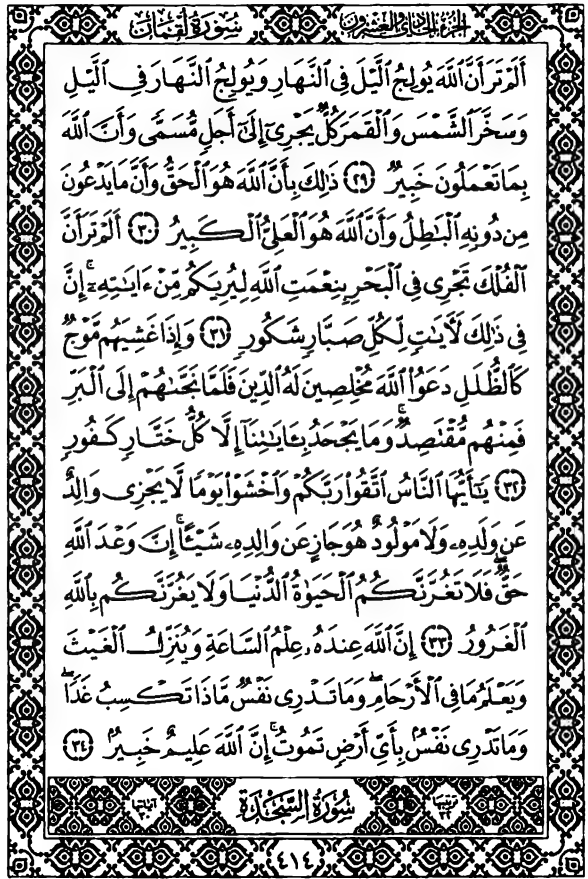 الجزء الحادي والعشرون سورة لقمان
أَلَمْ تَرَ أَنَّ ٱللَّهَ يُولِجُ ٱلَّيْلَ فِى ٱلنَّهَارِ وَيُولِجُ ٱلنَّهَارَ فِى ٱلَّيْلِ
وَسَخَّرَ ٱلشَّمْسَ وَٱلْقَمَرَ كُلٌّ يَجْرِىٓ إِلَىٰٓ أَجَلٍ مُّسَمًّى وَأَنَّ ٱللَّهَ
بِمَا تَعْمَلُونَ خَبِيرٌ ٢٩ ذَٰلِكَ بِأَنَّ ٱللَّهَ هُوَ ٱلْحَقُّ وَأَنَّ مَا يَدْعُونَ
مِن دُونِهِ ٱلْبَٰطِلُ وَأَنَّ ٱللَّهَ هُوَ ٱلْعَلِىُّ ٱلْكَبِيرُ ٣٠ أَلَمْ تَرَ أَنَّ
ٱلْفُلْكَ تَجْرِى فِى ٱلْبَحْرِ بِنِعْمَتِ ٱللَّهِ لِيُرِيَكُم مِّنْ ءَايَٰتِهِۦٓ ۚ إِنَّ
فِى ذَٰلِكَ لَءَايَٰتٍ لِّكُلِّ صَبَّارٍ شَكُورٍ ٣١ وَإِذَا غَشِيَهُم مَّوْجٌ
كَٱلظُّلَلِ دَعَوُا۟ ٱللَّهَ مُخْلِصِينَ لَهُ ٱلدِّينَ فَلَمَّا نَجَّىٰهُمْ إِلَى ٱلْبَرِّ
فَمِنْهُم مُّقْتَصِدٌ ۚ وَمَا يَجْحَدُ بِـَٔايَٰتِنَآ إِلَّا كُلُّ خَتَّارٍ كَفُورٍ
٣٢ يَٰٓأَيُّهَا ٱلنَّاسُ ٱتَّقُوا۟ رَبَّكُمْ وَٱخْشَوْا۟ يَوْمًا لَّا يَجْزِى وَالِدٌ
عَن وَلَدِهِۦ وَلَا مَوْلُودٌ هُوَ جَازٍ عَن وَالِدِهِۦ شَيْـًٔا ۚ إِنَّ وَعْدَ ٱللَّهِ
حَقٌّ ۖ فَلَا تَغُرَّنَّكُمُ ٱلْحَيَوٰةُ ٱلدُّنْيَا وَلَا يَغُرَّنَّكُم بِٱللَّهِ
ٱلْغَرُورُ ٣٣ إِنَّ ٱللَّهَ عِندَهُۥ عِلْمُ ٱلسَّاعَةِ وَيُنَزِّلُ ٱلْغَيْثَ
وَيَعْلَمُ مَا فِى ٱلْأَرْحَامِ ۖ وَمَا تَدْرِى نَفْسٌ مَّاذَا تَكْسِبُ غَدًا ۖ
وَمَا تَدْرِى نَفْسٌۢ بِأَىِّ أَرْضٍ تَمُوتُ ۚ إِنَّ ٱللَّهَ عَلِيمٌ خَبِيرٌۢ ٣٤
ترتيبها ٣٢ سُورَةُ السَّجْدَةِ آياتها ٣٠
٤١٤